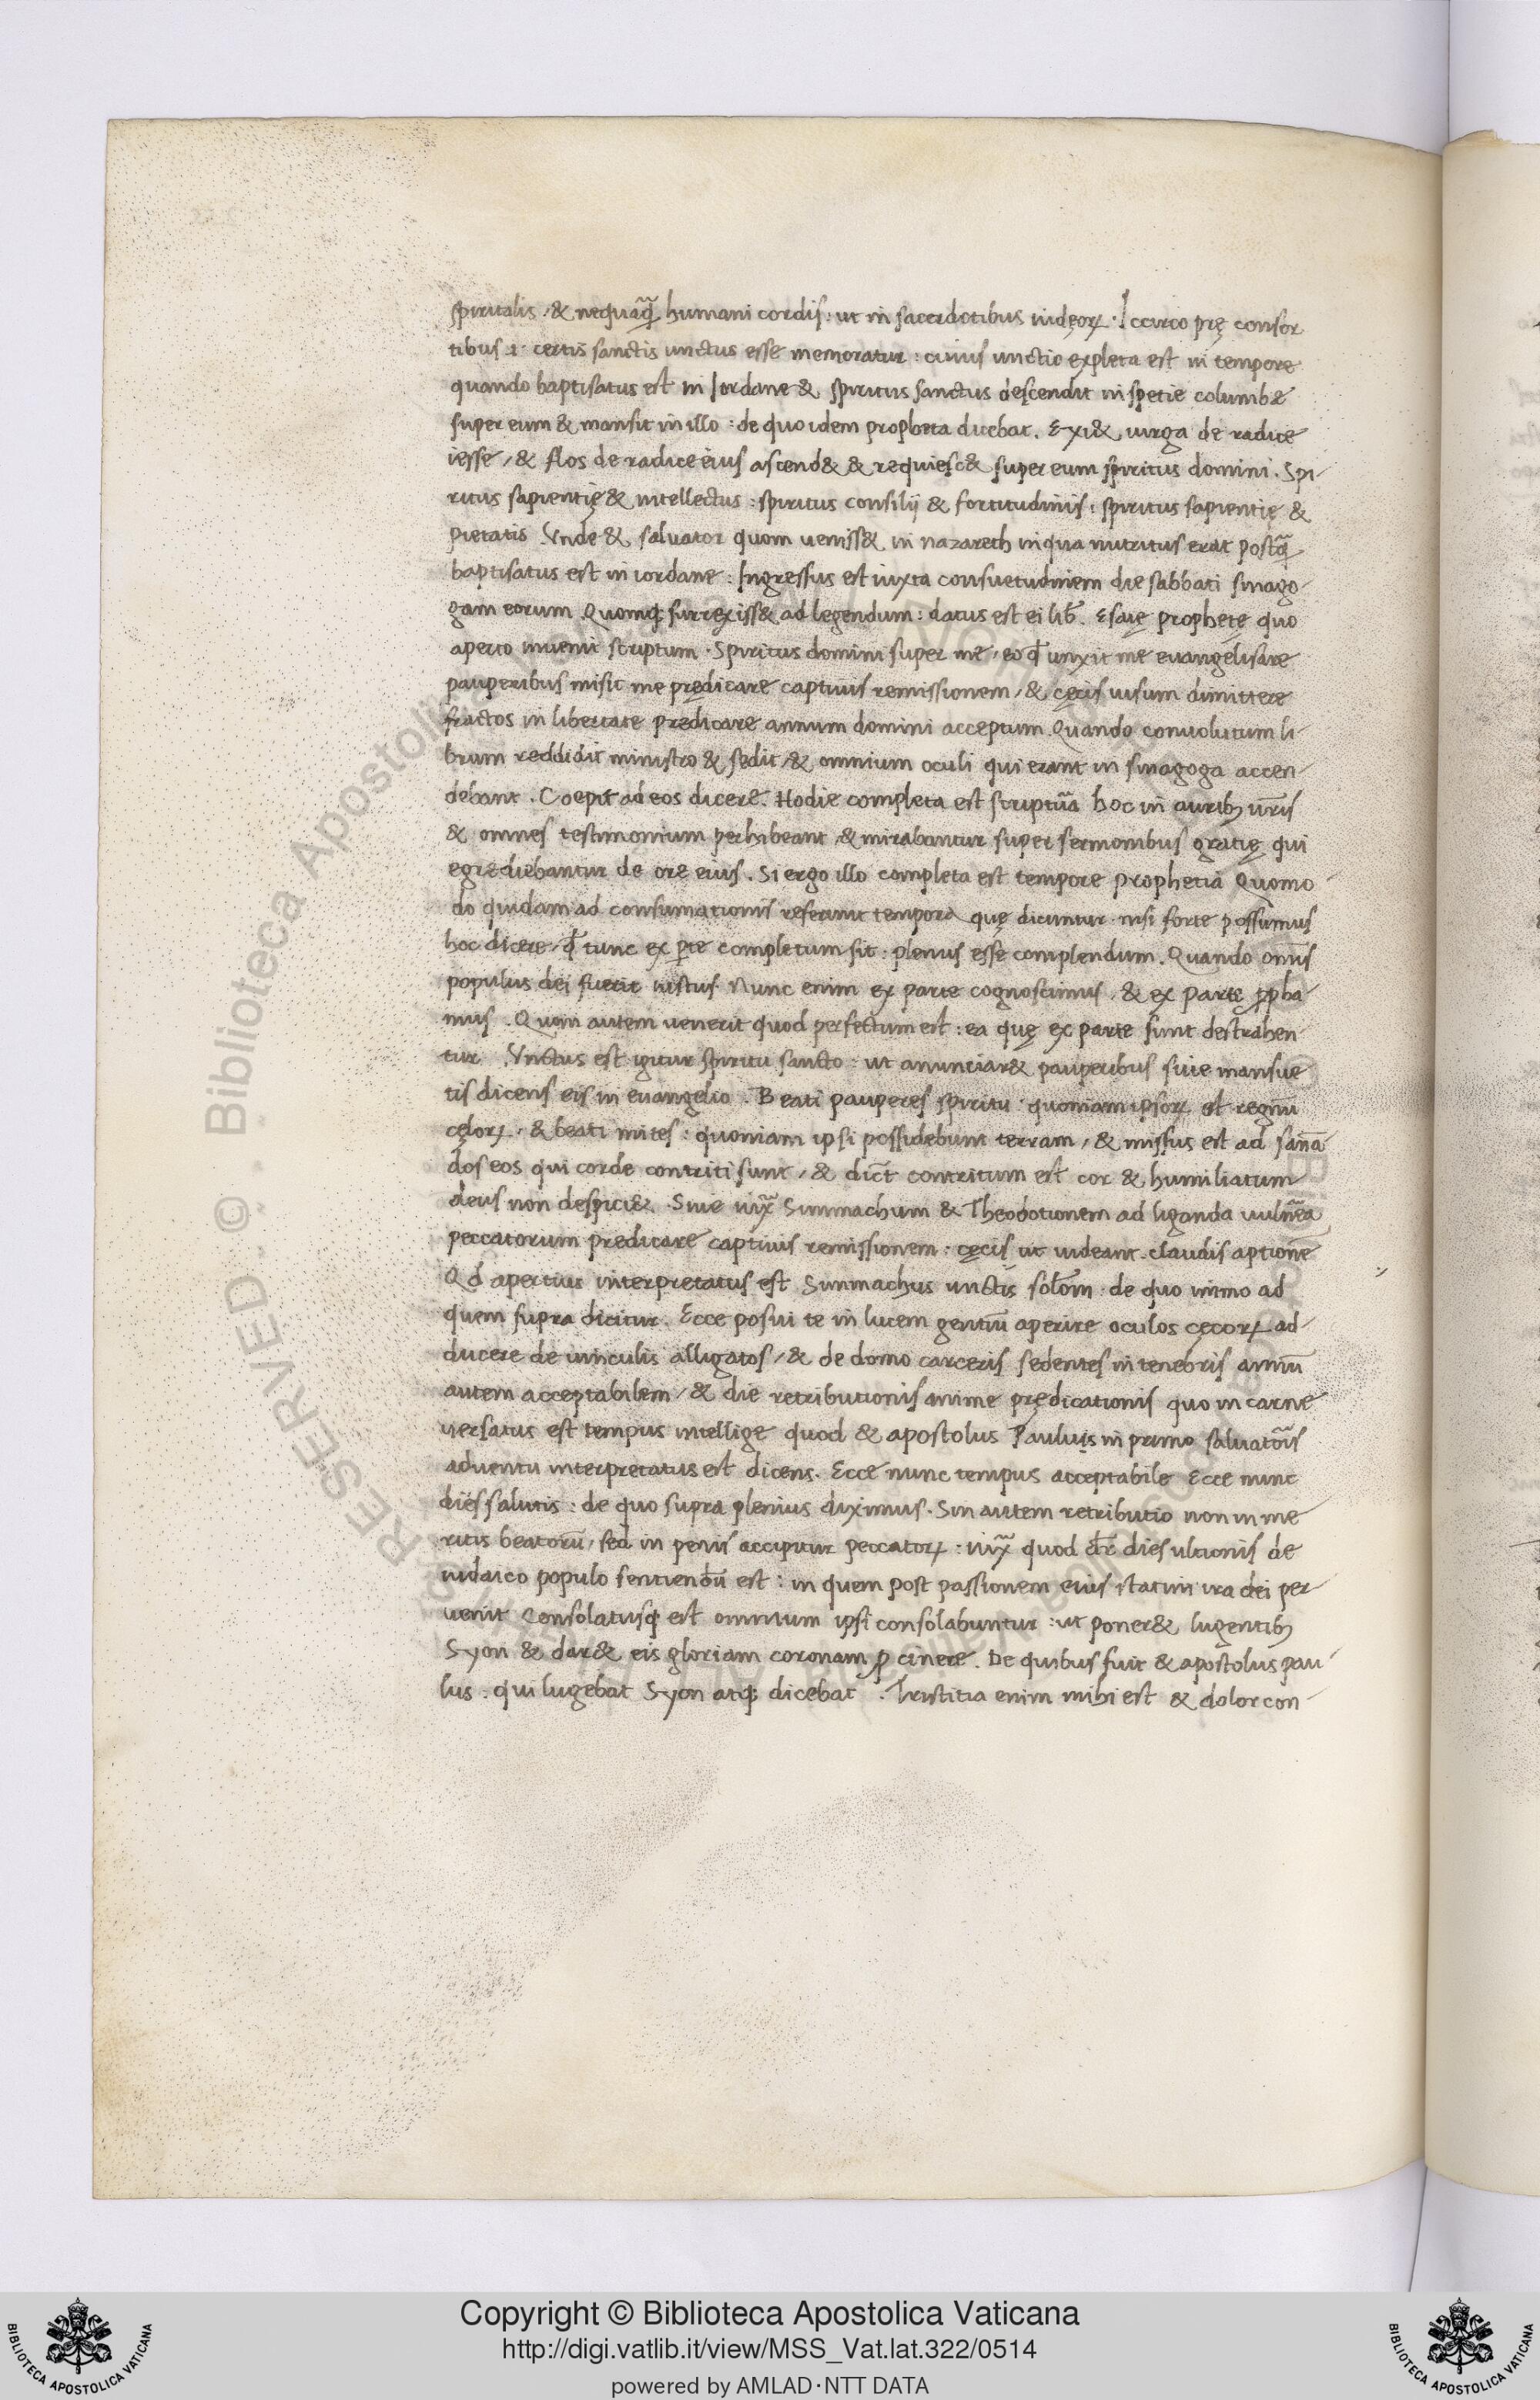 spiritalis / & nequaq̃ humani cordis : ut in sacerdotibus iudęoꝝ . Iccirco prę consor
tibus .i. certis sanctis unctus esse memoratur : cuius unctio expleta est in tempore
quando baptisatus est in Iordane & spiritus sanctus descendit in spetie columbæ
super eum & mansit in illo : de quo idem propheta dicebat . Exi& uirga de radice
iesse / & flos de radice eius ascend& & requiesc& super eum spiritus domini . Spi-
ritus sapientię & intellectus : spiritus consilij & fortitudinis : spiritus sapientię &
pietatis Vnde & saluator quom ueniss& in nazareth in qua nutritus erat postq̃
baptisatus est in iordane : Ingressus est iuxta consuetudinem die sabbati sinago-
gam eorum . Quomq; surrexiss& ad legendum : datus est ei lib̃ . Esaię prophetę quo
aperto inuenit scriptum . Spiritus domini super me / eo q̃ unxit me euangelisare
pauperibus misit me prędicare captiuis remissionem / & cęcis uisum dimittere
fractos in libertate prędicare annum domini acceptum . Quando conuolutum li-
brum reddidit ministro & sedit / & omnium oculi qui erant in sinagoga accen-
debant . Coepit ad eos dicere . Hodie completa est scriptũa hoc in auribꝫ ur̃is
& omnes testimonium perhibeant / & mirabantur super sermonibus gratię qui
egrediebantur de ore eius . Si ergo illo completa est tempore prophetia Quomo-
do quidam ad consumationis referunt tempora quę dicuntur . nisi forte possumus
hoc dicere / q̃ tunc ex ꝑte completum sit : plenius esse complendum . Quando om̃is
populus dei fuerit iustus Nunc enim ex parte cognoscimus , & ex parte ꝓpha
mus . Quom autem uenerit quod perfectum est : ea quę ex parte sunt destrahen-
tur Vnctus est igitur spiritu sancto : ut anunciar& pauperibus siue mansue
tis dicens eis in euangelio . Beati pauperes spiritu : quoniam ipsoꝝ est regnũ
cęloꝝ . & beati mites : quoniam ipsi possidebunt terram / & missus est ad sañan
dos eos qui corde contriti sunt / & dic̃t contritum est cor & humiliatum
deus non despici& . Siue iux̃ Simmachum & Theodotionem ad liganda uuln̾ea
peccatorum predicare captiuis remissionem : cęcis ut uideant . claudis aptionẽ
Qd apertius interpretatus est Simmachus unctis solõm de quo immo ad
quem supra dicitur . Ecce posui te in lucem gentiũ aperire oculos cęcoꝝ ad-
ducere de uinculis alligatos / & de domo carceris sedentes in tenebris annũ
autem acceptabilem / & die retributionis anime prędicationis quo in carne
uersatus est tempus intellige quod & apostolus Paulus in primo saluatõis
aduentu interpretatus est dicens . Ecce nunc tempus acceptabile Ecce nunc
dies salutis : de quo supra plenius diximus . Sin autem retributio non in me
ritis beatorũ / sed in penis accipitur peccatoꝝ : iux̃ quod dr̃ dies ultionis de
iudaico populo sentiendũ est : in quem post passionem eius statim ira dei per-
uenit Consolatusq; est omnium ipsi consolabuntur : ut poner& lugentibꝫ
Syon & dar& eis gloriam coronam ꝓ cinere . De quibus fuit & apostolus pau-
lus . qui lugebat Syon atq; dicebat . Tristitia enim mihi est & dolor con-
RESERVED © Biblioteca Apostolica
BIBLIOTECA APOSTOLICA VATICANA
Copyright © Biblioteca Apostolica Vaticana
http://digi.vatlib.it/view/MSS_Vat.lat.322/0514
powered by AMLAD·NTT DATA
BIBLIOTECA APOSTOLICA VATICANA